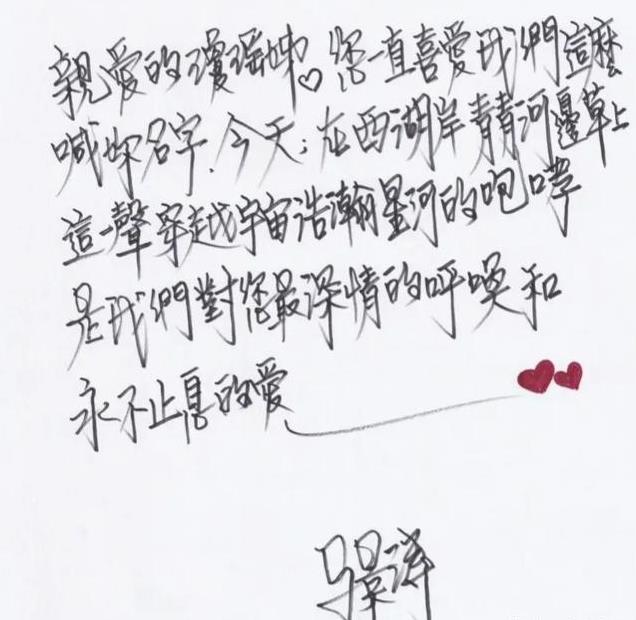 親愛的瓊瑤姊♡您一直喜愛我們這麼
喊妳名字.今天:在西湖岸青青河邊草上
這一聲穿越宇宙浩瀚星河的咆哮
是我們對您最深情的呼喚和
永不止息的愛
馬景濤